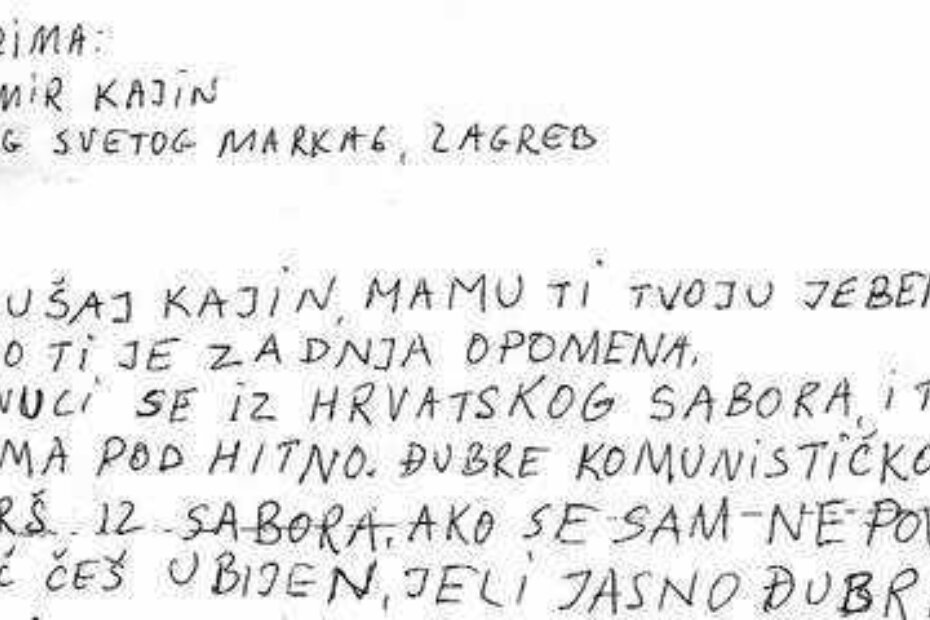 RIMA:
MIR KAJIN
G SVETOG MARKA 6, ZAGREB
UŠAJ KAJIN, MAMU TI TVOJU JEBE
O TI JE ZADNJA OPOMENA.
VUCI SE IZ HRVATSKOG SABORA, I T
MA POD HITNO. ĐUBRE KOMUNISTIČKO
RŠ IZ SABORA, AKO SE SAM NE POV
ČEŠ UBIJEN, JELI JASNO ĐUBR